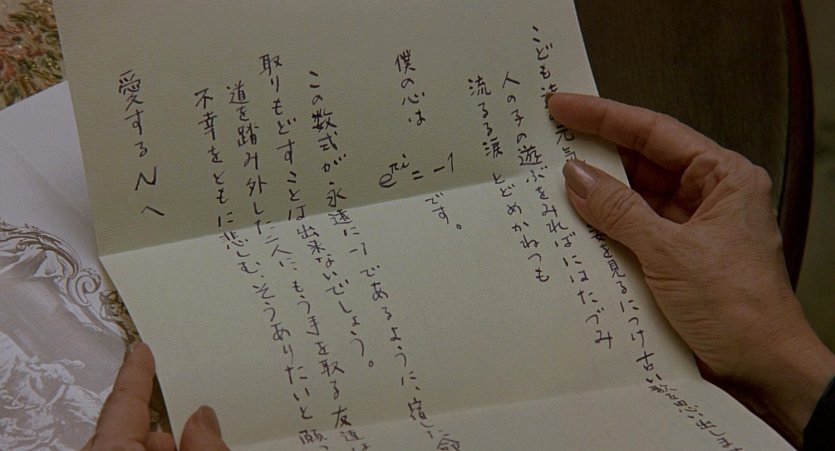 こども達の元気 姿を見るにつけ古い
人の子の遊ぶをみればにはたづみ
流るる涙とどめかねつも
僕の心は
e^πi = -1 です。
この数式が永遠に-1であるように、宿した命
取りもどすことは出来ないでしょう。
道を踏み外した二人に、もう手を取る友達は
不幸をともに悲しむ、そうありたいと願
愛するNへ